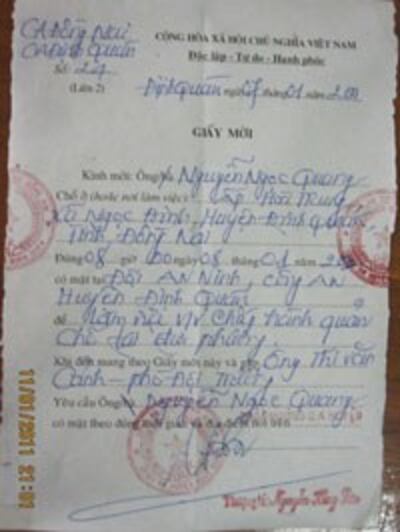 CA Đồng Nai
CA Định Quán
CỘNG HÒA XÃ HỘI CHỦ NGHĨA VIỆT NAM
Độc lập - Tự do - Hạnh phúc
Số:
(Lần 2)
Định Quán ngày 07 tháng 01 năm
GIẤY MỜI
Kính mời: Ông/bà Nguyễn Ngọc Quang
Chỗ ở (hoặc nơi làm việc): ấp
xã Ngọc Định, Huyện Định Quán,
Tỉnh Đồng Nai
Đúng 08 giờ 00 ngày 08 tháng 01 năm
có mặt tại Đội An Ninh, Công An
Huyện Định Quán
để Làm việc V/v Chấp hành quản
chế tại địa phương
Khi đến mang theo Giấy mời này và gặp Ông Thi Văn
Cảnh - phó Đội trưởng
Yêu cầu Ông/bà Nguyễn Ngọc Quang
có mặt theo đúng thời gian và địa điểm nói trên
11/01/2011 21:01